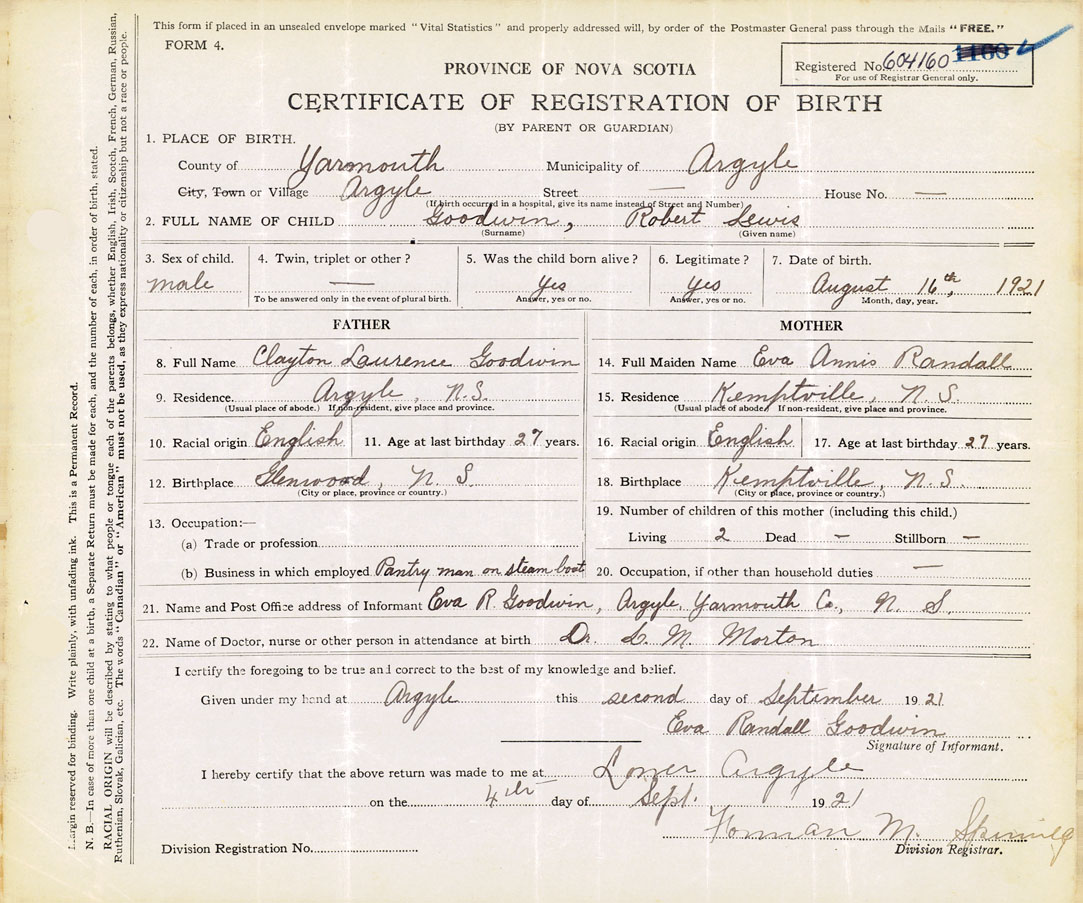 This form if placed in an unsealed envelope marked "Vital Statistics" and properly addressed will, by order of the Postmaster General pass through the Mails "FREE."
FORM 4.
Registered No. 604160 1160
For use of Registrar General only.
PROVINCE OF NOVA SCOTIA
CERTIFICATE OF REGISTRATION OF BIRTH
(BY PARENT OR GUARDIAN)
1. PLACE OF BIRTH.
County of Yarmouth Municipality of Argyle
City, Town or Village Argyle Street — House No. —
(If birth occurred in a hospital, give its name instead of Street and Number)
2. FULL NAME OF CHILD Goodwin, Robert Lewis
(Surname) (Given name)
3. Sex of child. 4. Twin, triplet or other? 5. Was the child born alive? 6. Legitimate? 7. Date of birth.
male — Yes Yes August 16th, 1921
To be answered only in the event of plural birth. Answer, yes or no. Answer, yes or no. Month, day, year.
FATHER MOTHER
8. Full Name Clayton Laurence Goodwin 14. Full Maiden Name Eva Annis Randall
9. Residence Argyle, N.S. 15. Residence Kemptville, N.S.
(Usual place of abode.) If non-resident, give place and province. (Usual place of abode) If non-resident, give place and province.
10. Racial origin English 11. Age at last birthday 27 years. 16. Racial origin English 17. Age at last birthday 27 years.
12. Birthplace Glenwood, N.S. 18. Birthplace Kemptville, N.S.
(City or place, province or country.) (City or place, province or country.)
13. Occupation:— 19. Number of children of this mother (including this child.)
(a) Trade or profession Living 2 Dead — Stillborn —
(b) Business in which employed Pantry man on steam boat 20. Occupation, if other than household duties —
21. Name and Post Office address of Informant Eva R. Goodwin, Argyle, Yarmouth Co., N.S.
22. Name of Doctor, nurse or other person in attendance at birth Dr. L. M. Morton
I certify the foregoing to be true and correct to the best of my knowledge and belief.
Given under my hand at Argyle this second day of September 1921
Eva Randall Goodwin
Signature of Informant.
I hereby certify that the above return was made to me at Lower Argyle
on the 4th day of Sept. 1921
Norman M.
Division Registrar.
Division Registration No.
Margin reserved for binding. Write plainly, with unfading ink. This is a Permanent Record.
N. B.—In case of more than one child at a birth, a Separate Return must be made for each, and the number of each, in order of birth, stated.
RACIAL ORIGIN will be described by stating to what people or tongue each of the parents belongs, whether English, Irish, Scotch, French, German, Russian,
Ruthenian, Slovak, Galician, etc. The words "Canadian" or "American" must not be used, as they express nationality or citizenship but not a race or people.